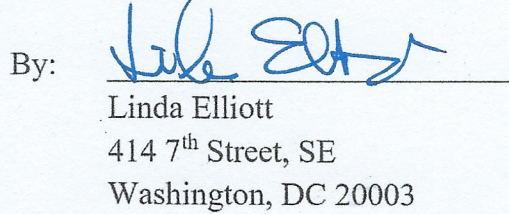 By: Linda Elliott
Linda Elliott
414 7th Street, SE
Washington, DC 20003